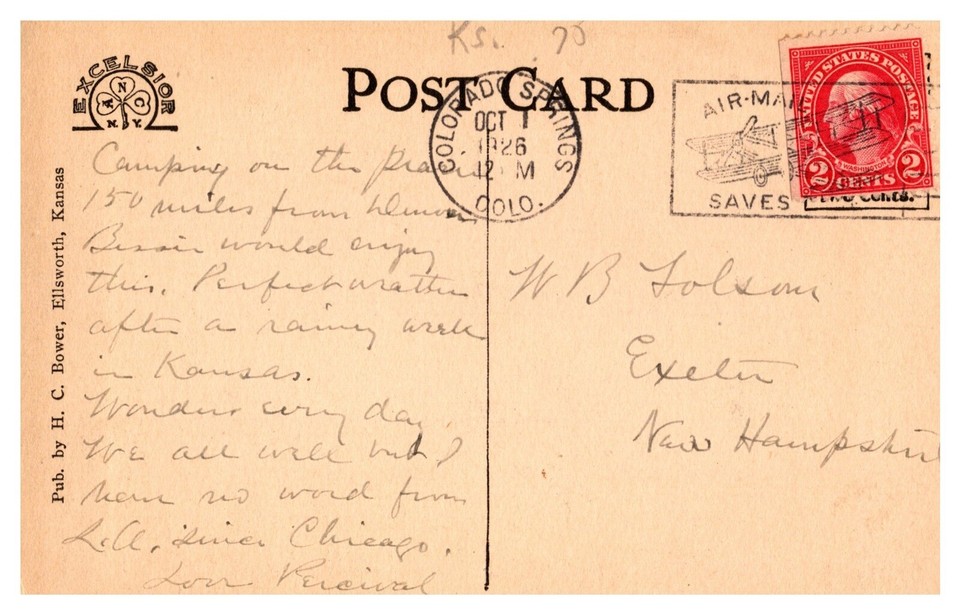 Ks. 70
EXCELSIOR
ANC
N.Y.
POST CARD
COLORADO SPRINGS
OCT 1
1926
12 M
COLO.
AIR-MAI
SAVES
UNITED STATES POSTAGE
WASHINGTON
2 CENTS 2
Two Cents.
Pub. by H. C. Bower, Ellsworth, Kansas
Camping on the prairie
150 miles from Denver
Bessie would enjoy
this. Perfect weather
after a rainy week
in Kansas.
Wonders every day.
We all well but I
have no word from
L.A. since Chicago.
Love Percival
W B Folsom
Exeter
New Hampshire